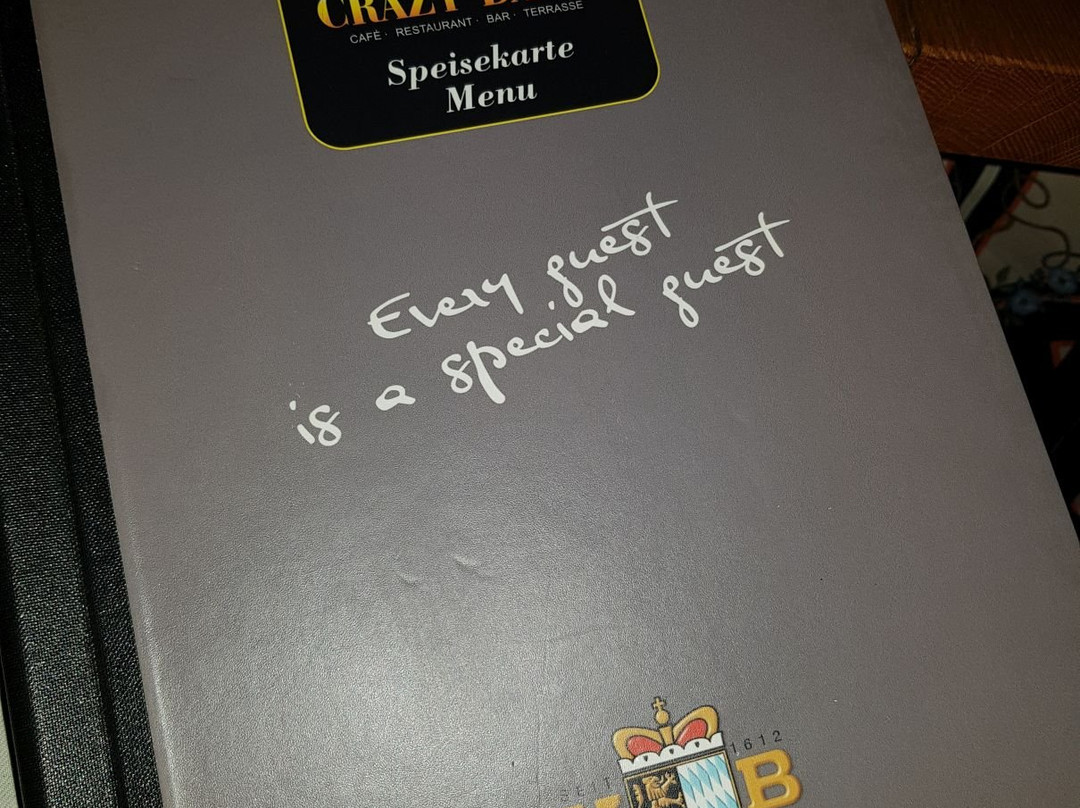 CRAZY
CAFÈ · RESTAURANT · BAR · TERRASSE
Speisekarte
Menu
Every guest
is a special guest
SEIT 1612
B